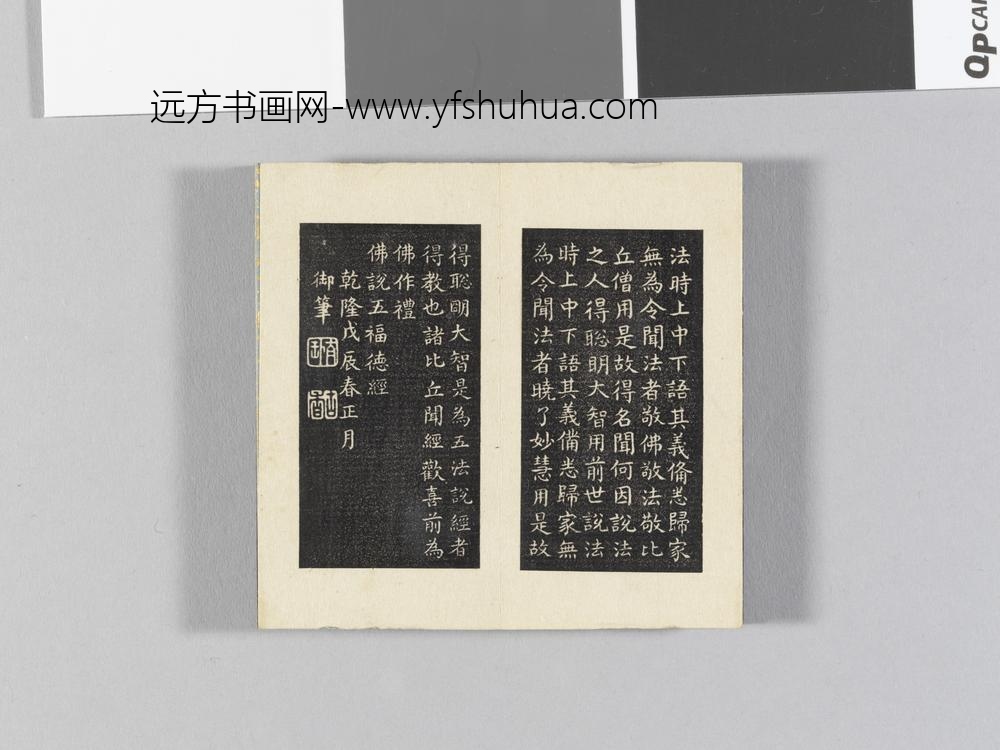 远方书画网-www.yfshuhua.com
QpCAR
法時上中下語其義俻悉歸家
無為令聞法者敬佛敬法敬比
丘僧用是故得名聞何因說法
之人得聡明大智用前世說法
時上中下語其義俻悉歸家無
為令聞法者曉了妙慧用是故
得聡明大智是為五法說經者
得教也諸比丘聞經歡喜前為
佛作禮
佛說五福德經
乾隆戊辰春正月
御筆